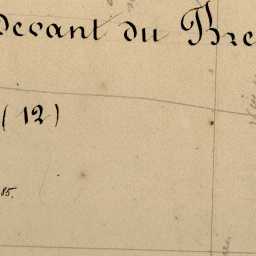 Devant du Bre
(12)
85.